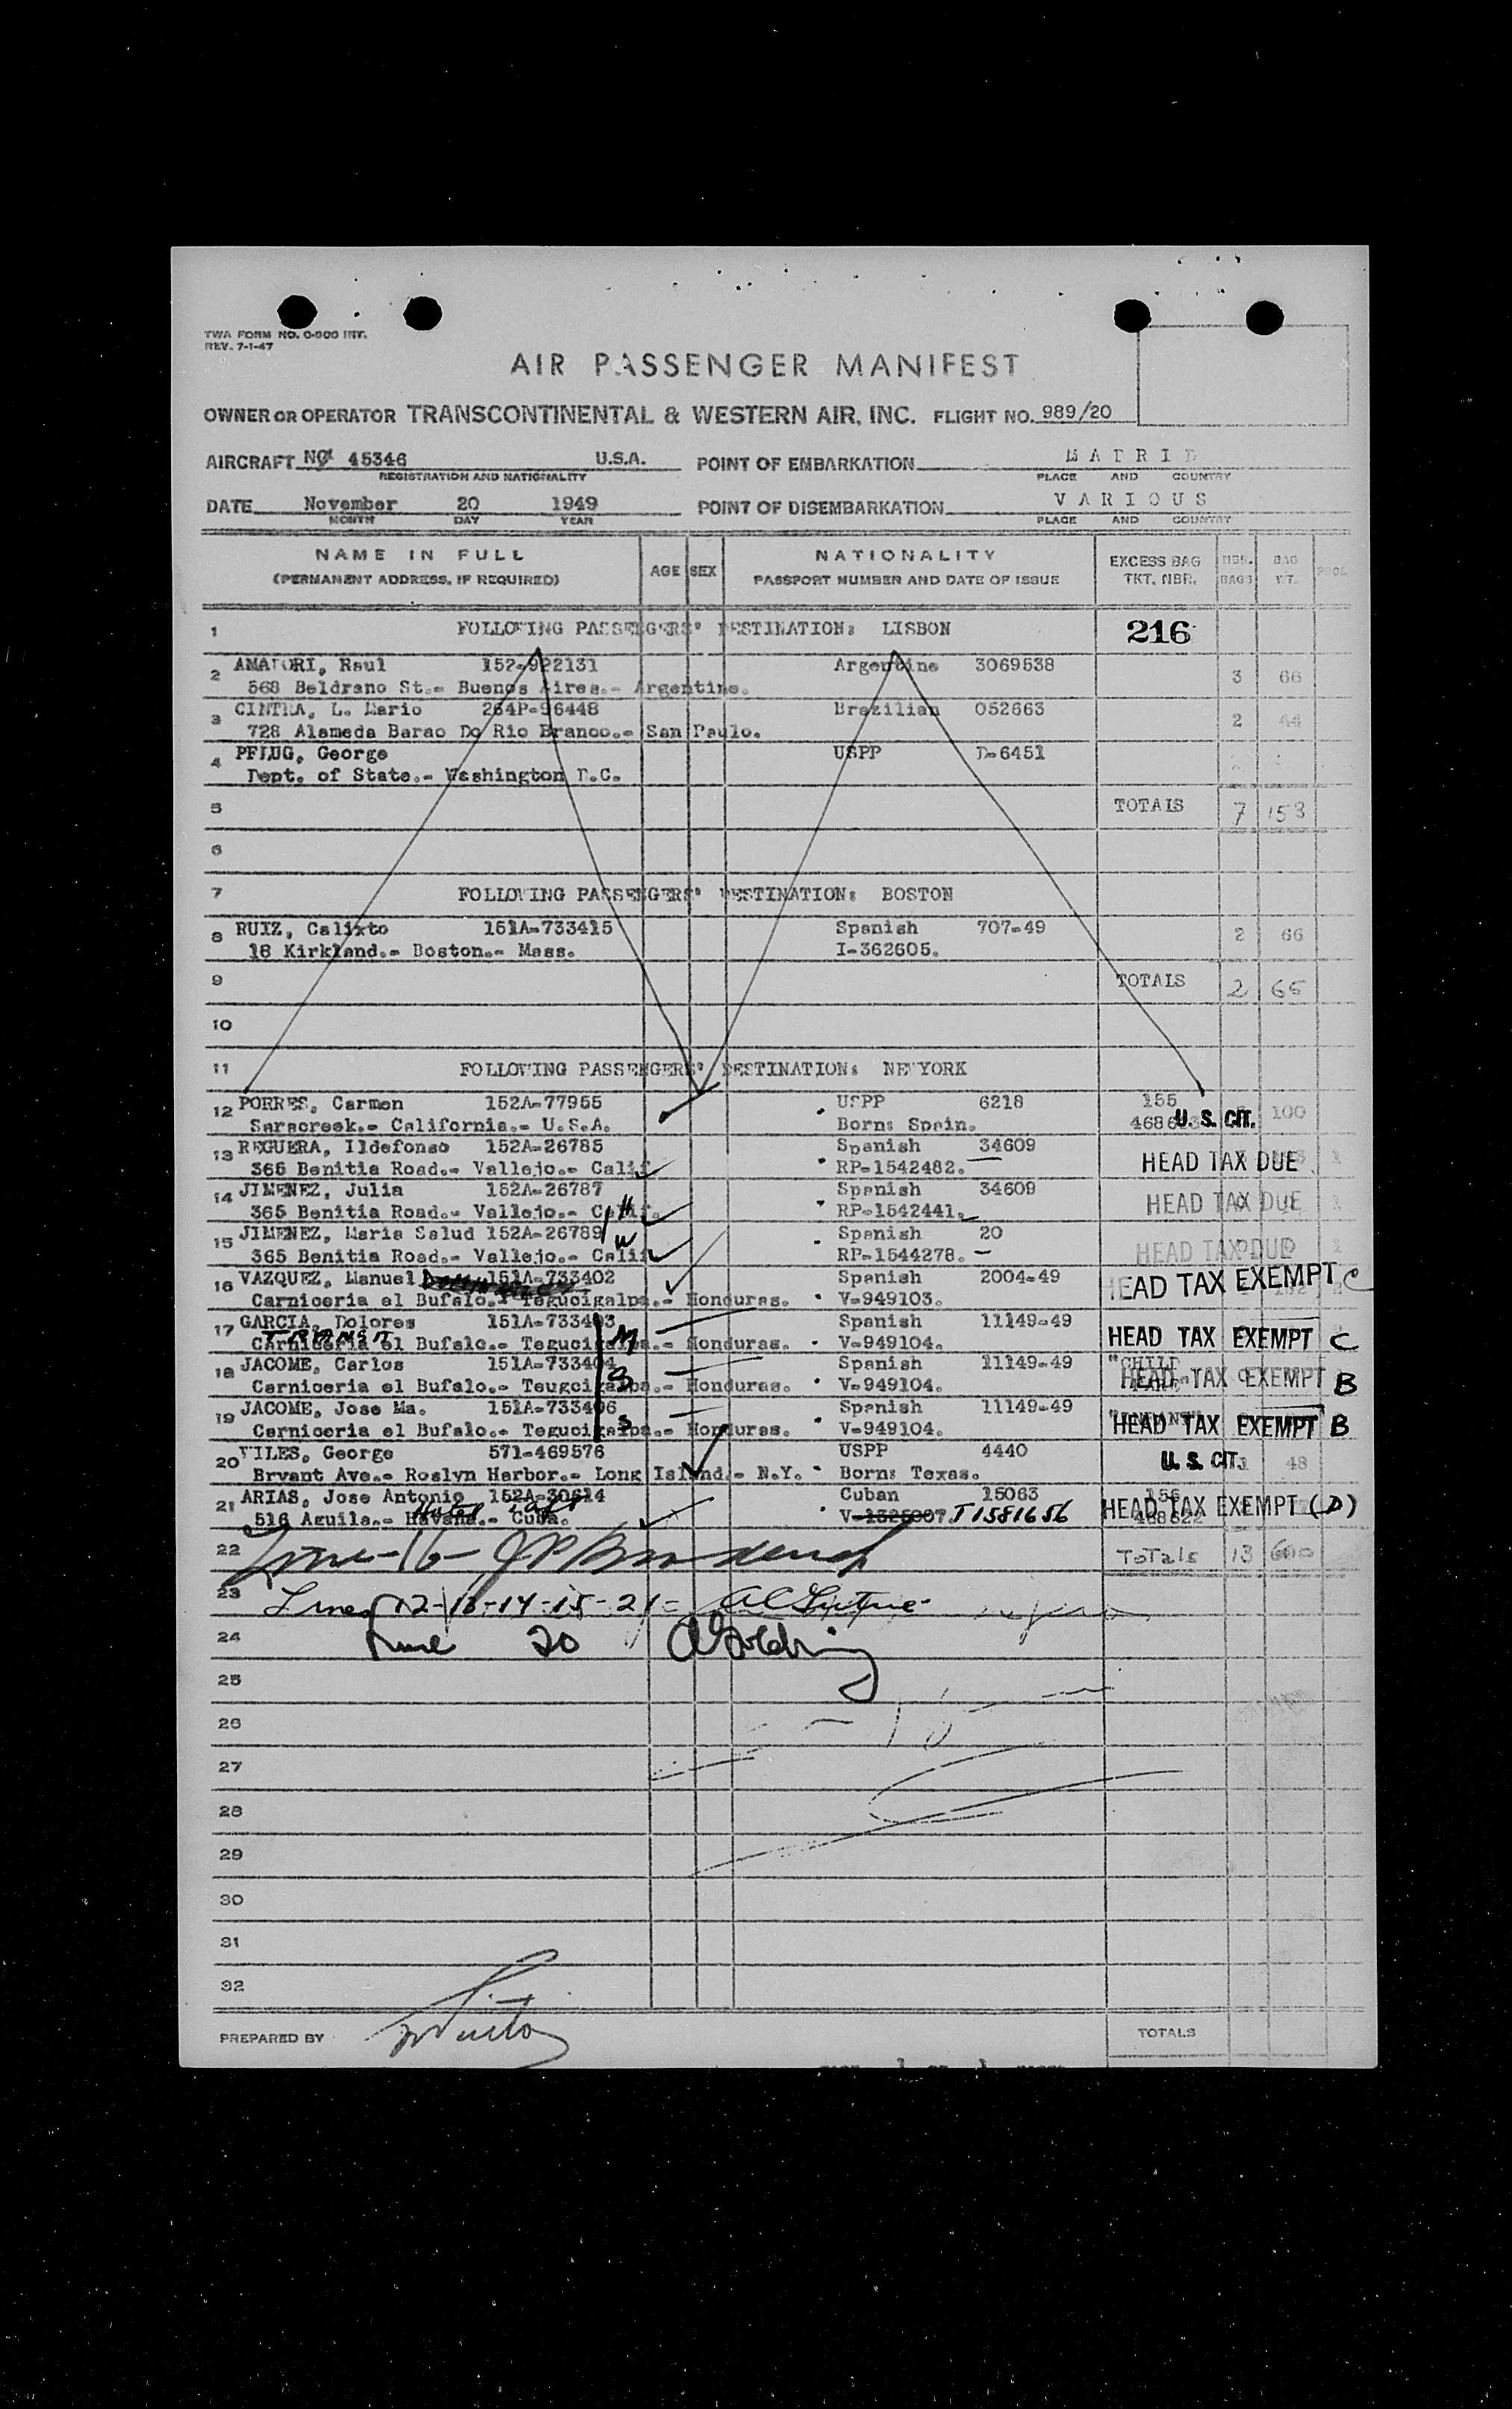 TWA FORM NO. O-900 INT.
REV. 7-1-47
AIR PASSENGER MANIFEST
OWNER OR OPERATOR TRANSCONTINENTAL & WESTERN AIR, INC. FLIGHT NO. 989/20
AIRCRAFT 45346 U.S.A. POINT OF EMBARKATION MADRID
REGISTRATION AND NATIONALITY PLACE AND COUNTRY
DATE November 20 1949 POINT OF DISEMBARKATION VARIOUS
MONTH DAY YEAR PLACE AND COUNTRY
NAME IN FULL AGE SEX NATIONALITY EXCESS BAG NBR. BAG
(PERMANENT ADDRESS, IF REQUIRED) PASSPORT NUMBER AND DATE OF ISSUE TKT. NBR. BAGS WT.
1 FOLLOWING PASSENGERS' DESTINATION: LISBON 216
2 AMATORI, Raul 152-922131 Argentine 3069538 3 66
568 Beldrano St.- Buenos Aires.- Argentine.
3 CINTRA, L. Mario 264P-96448 Brazilian 052663 2 44
728 Alameda Barao Do Rio Branco.- San Paulo.
4 PFLUG, George USPP D-6451
Dept. of State.- Washington D.C.
5 TOTALS 7 153
6
7 FOLLOWING PASSENGERS' DESTINATION: BOSTON
8 RUIZ, Calixto 151A-733415 Spanish 707-49 2 66
18 Kirkland.- Boston.- Mass. I-362605.
9 TOTALS 2 66
10
11 FOLLOWING PASSENGERS' DESTINATION: NEW YORK
12 PORRES, Carmen 152A-77955 USPP 6218 155 100
Saracreek.- California.- U.S.A. Born: Spain. U.S. CIT.
13 REGUERA, Ildefonso 152A-26785 Spanish 34609
365 Benitia Road.- Vallejo.- Calif. RP-1542482. HEAD TAX DUE
14 JIMENEZ, Julia 152A-26787 Spanish 34609
365 Benitia Road.- Vallejo.- Calif. H RP-1542441. HEAD TAX DUE
15 JIMENEZ, Maria Salud 152A-26789 W Spanish 20
365 Benitia Road.- Vallejo.- Calif. RP-1544278. HEAD TAX DUE
16 VAZQUEZ, Manuel 151A-733402 Spanish 2004-49 HEAD TAX EXEMPT C
Carniceria el Bufalo.- Tegucigalpa.- Honduras. V-949103.
17 GARCIA, Dolores 151A-733403 Spanish 11149-49
TRANSIT
Carniceria el Bufalo.- Tegucigalpa.- Honduras. M V-949104. HEAD TAX EXEMPT C
18 JACOME, Carlos 151A-733404 Spanish 11149-49 "CHILD
Carniceria el Bufalo.- Teugcigalpa.- Honduras. V-949104. HEAD TAX EXEMPT B
19 JACOME, Jose Ma. 151A-733406 Spanish 11149-49
Carniceria el Bufalo.- Tegucigalpa.- Honduras. S V-949104. HEAD TAX EXEMPT B
20 VILES, George 571-469576 USPP 4440 U.S. CIT. 48
Bryant Ave.- Roslyn Harbor.- Long Island.- N.Y. Born: Texas.
21 ARIAS, Jose Antonio 152A-30614 Cuban 15063 156
516 Aguila.- Havana.- Cuba. T1581656 HEAD TAX EXEMPT (D)
22 Line-16- Totals 13 600
23 Lines 12-13-14-15-21=
24 Line 20
25
26
27
28
29
30
31
32
PREPARED BY TOTALS